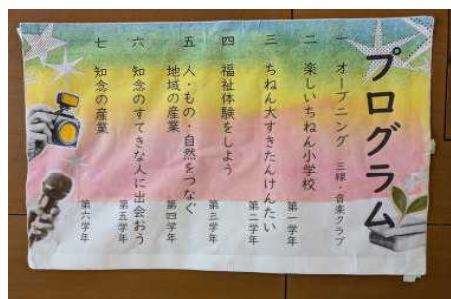 プログラム
一 オープニング 三線・音楽クラブ
二 楽しいちねん小学校 第一学年
三 ちねん大すきたんけんたい 第二学年
四 福祉体験をしよう 第三学年
五 人・もの・自然をつなぐ
地域の産業 第四学年
六 知念のすてきな人に出会おう 第五学年
七 知念の産業 第六学年